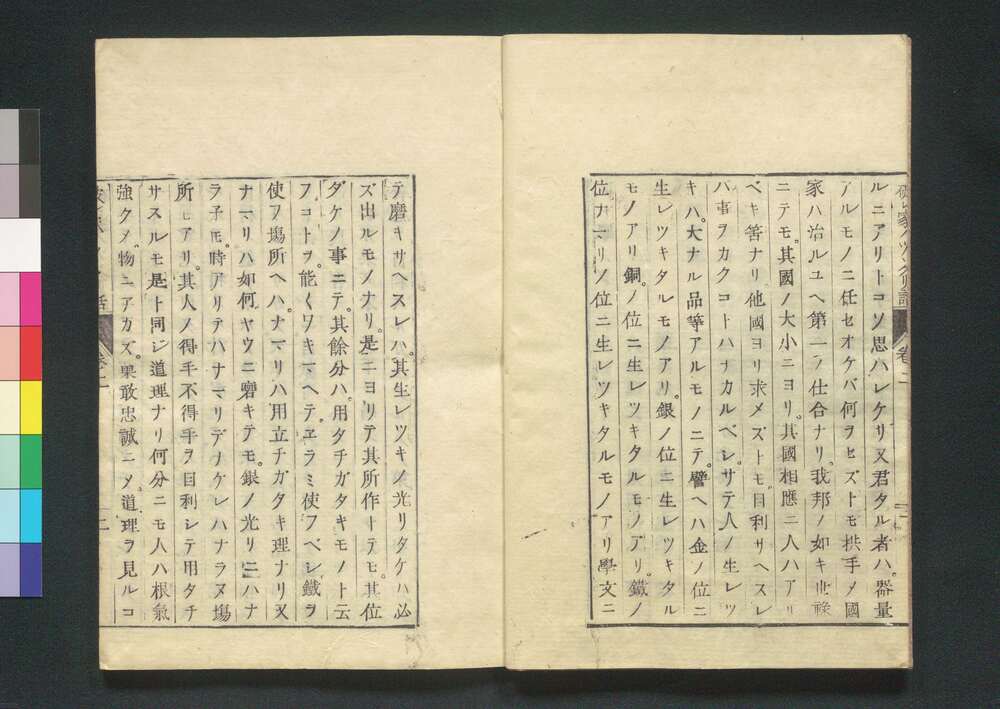 ルニアリトコソ思ハレケリ又君タル者ハ。器量
アルモノニ任セオケバ何ヲセズトモ拱手〆國
家ハ治ルユヘ第一ノ仕合ナリ。我邦ノ如キ世祿
ニテモ。其國ノ大小ニヨリ。其國相應ニ人ハアリ
ベキ筈ナリ他國ヨリ求メズトモ。目利サヘスレ
バ事ヲカクコトハナカルベシ。サテ人ノ生レツ
キハ。大ナル品等アルモノニテ。譬ヘハ金ノ位ニ
生レツキタルモノアリ。銀ノ位ニ生レツキタル
モノアリ銅。ノ位ニ生レツキタルモノアリ。鐵ノ
位ナマリノ位ニ生レツキタルモノアリ學文ニ
テ磨キサヘスレハ。其生レツキノ光リタケハ必
ズ出ルモノナリ。是ニヨリテ其所作トテモ。其位
ダケノ事ニテ。其餘分ハ。用タチガタキモノト云
フコトヲ。能くワキマヘテ。ユラミ使フベシ鐵ヲ
使フ塲所ヘハ。ナマリハ用立チガタキ理ナリ又
ナマリハ如何ヤウニ磨キテモ。銀ノ光リニハナ
ラ子モ。時アリテハナマリデナケレハナラヌ塲
所モアリ。其人ノ得手不得手ヲ目利シテ用タチ
サスルモ是ト同ジ道理ナリ何分ニモ人ハ根氣
強ク〆。物ニアカズ。果敢忠誠ニ〆。道理ヲ見ルコ
卷二
二